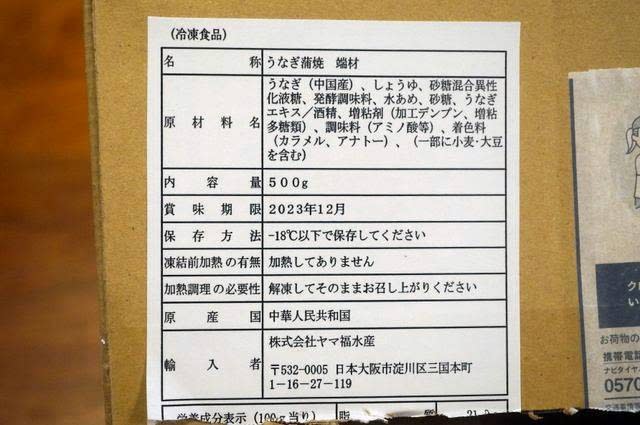 (冷凍食品)
名称 うなぎ蒲焼 端材
原材料名 うなぎ(中国産)、しょうゆ、砂糖混合異性
化液糖、発酵調味料、水あめ、砂糖、うなぎ
エキス／酒精、増粘剤(加工デンプン、増粘
多糖類)、調味料(アミノ酸等)、着色料
(カラメル、アナトー)、(一部に小麦・大豆
を含む)
内容量 500g
賞味期限 2023年12月
保存方法 -18℃以下で保存してください
凍結前加熱の有無 加熱してありません
加熱調理の必要性 解凍してそのままお召し上がりください
原産国 中華人民共和国
輸入者 株式会社ヤマ福水産
〒532-0005 日本大阪市淀川区三国本町
1-16-27-119
栄養成分表示(100g当り) 脂質
ク
い
お荷物の
携帯電
ナビダイヤ
0570